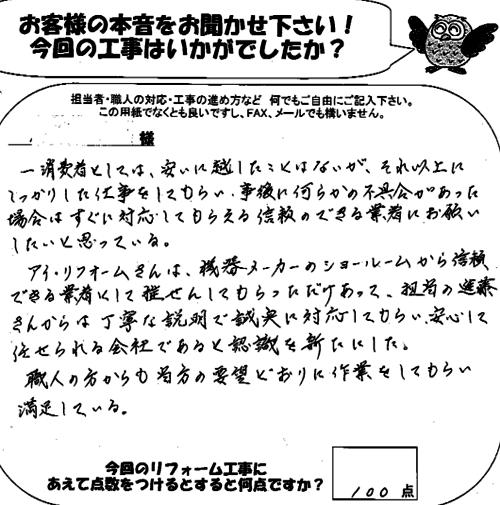 お客様の本音をお聞かせ下さい！
今回の工事はいかがでしたか？
担当者・職人の対応・工事の進め方など 何でもご自由にご記入下さい。
この用紙でなくとも良いですし、FAX、メールでも構いません。
様
一消費者としては、安いに越したことはないが、それ以上に
しっかりした仕事をしてもらい、事後に何らかの不具合があった
場合はすぐに対応してもらえる信頼のできる業者にお願い
したいと思っている。
アイ・リフォームさんは、機器メーカーのショールームから信頼
できる業者として推せんしてもらっただけあって、担当の進藤
さんからは丁寧な説明で誠実に対応してもらい、安心して
任せられる会社であると認識を新たにした。
職人の方からも当方の要望どおりに作業をしてもらい
満足している。
今回のリフォーム工事に
あえて点数をつけるとすると何点ですか？
100 点